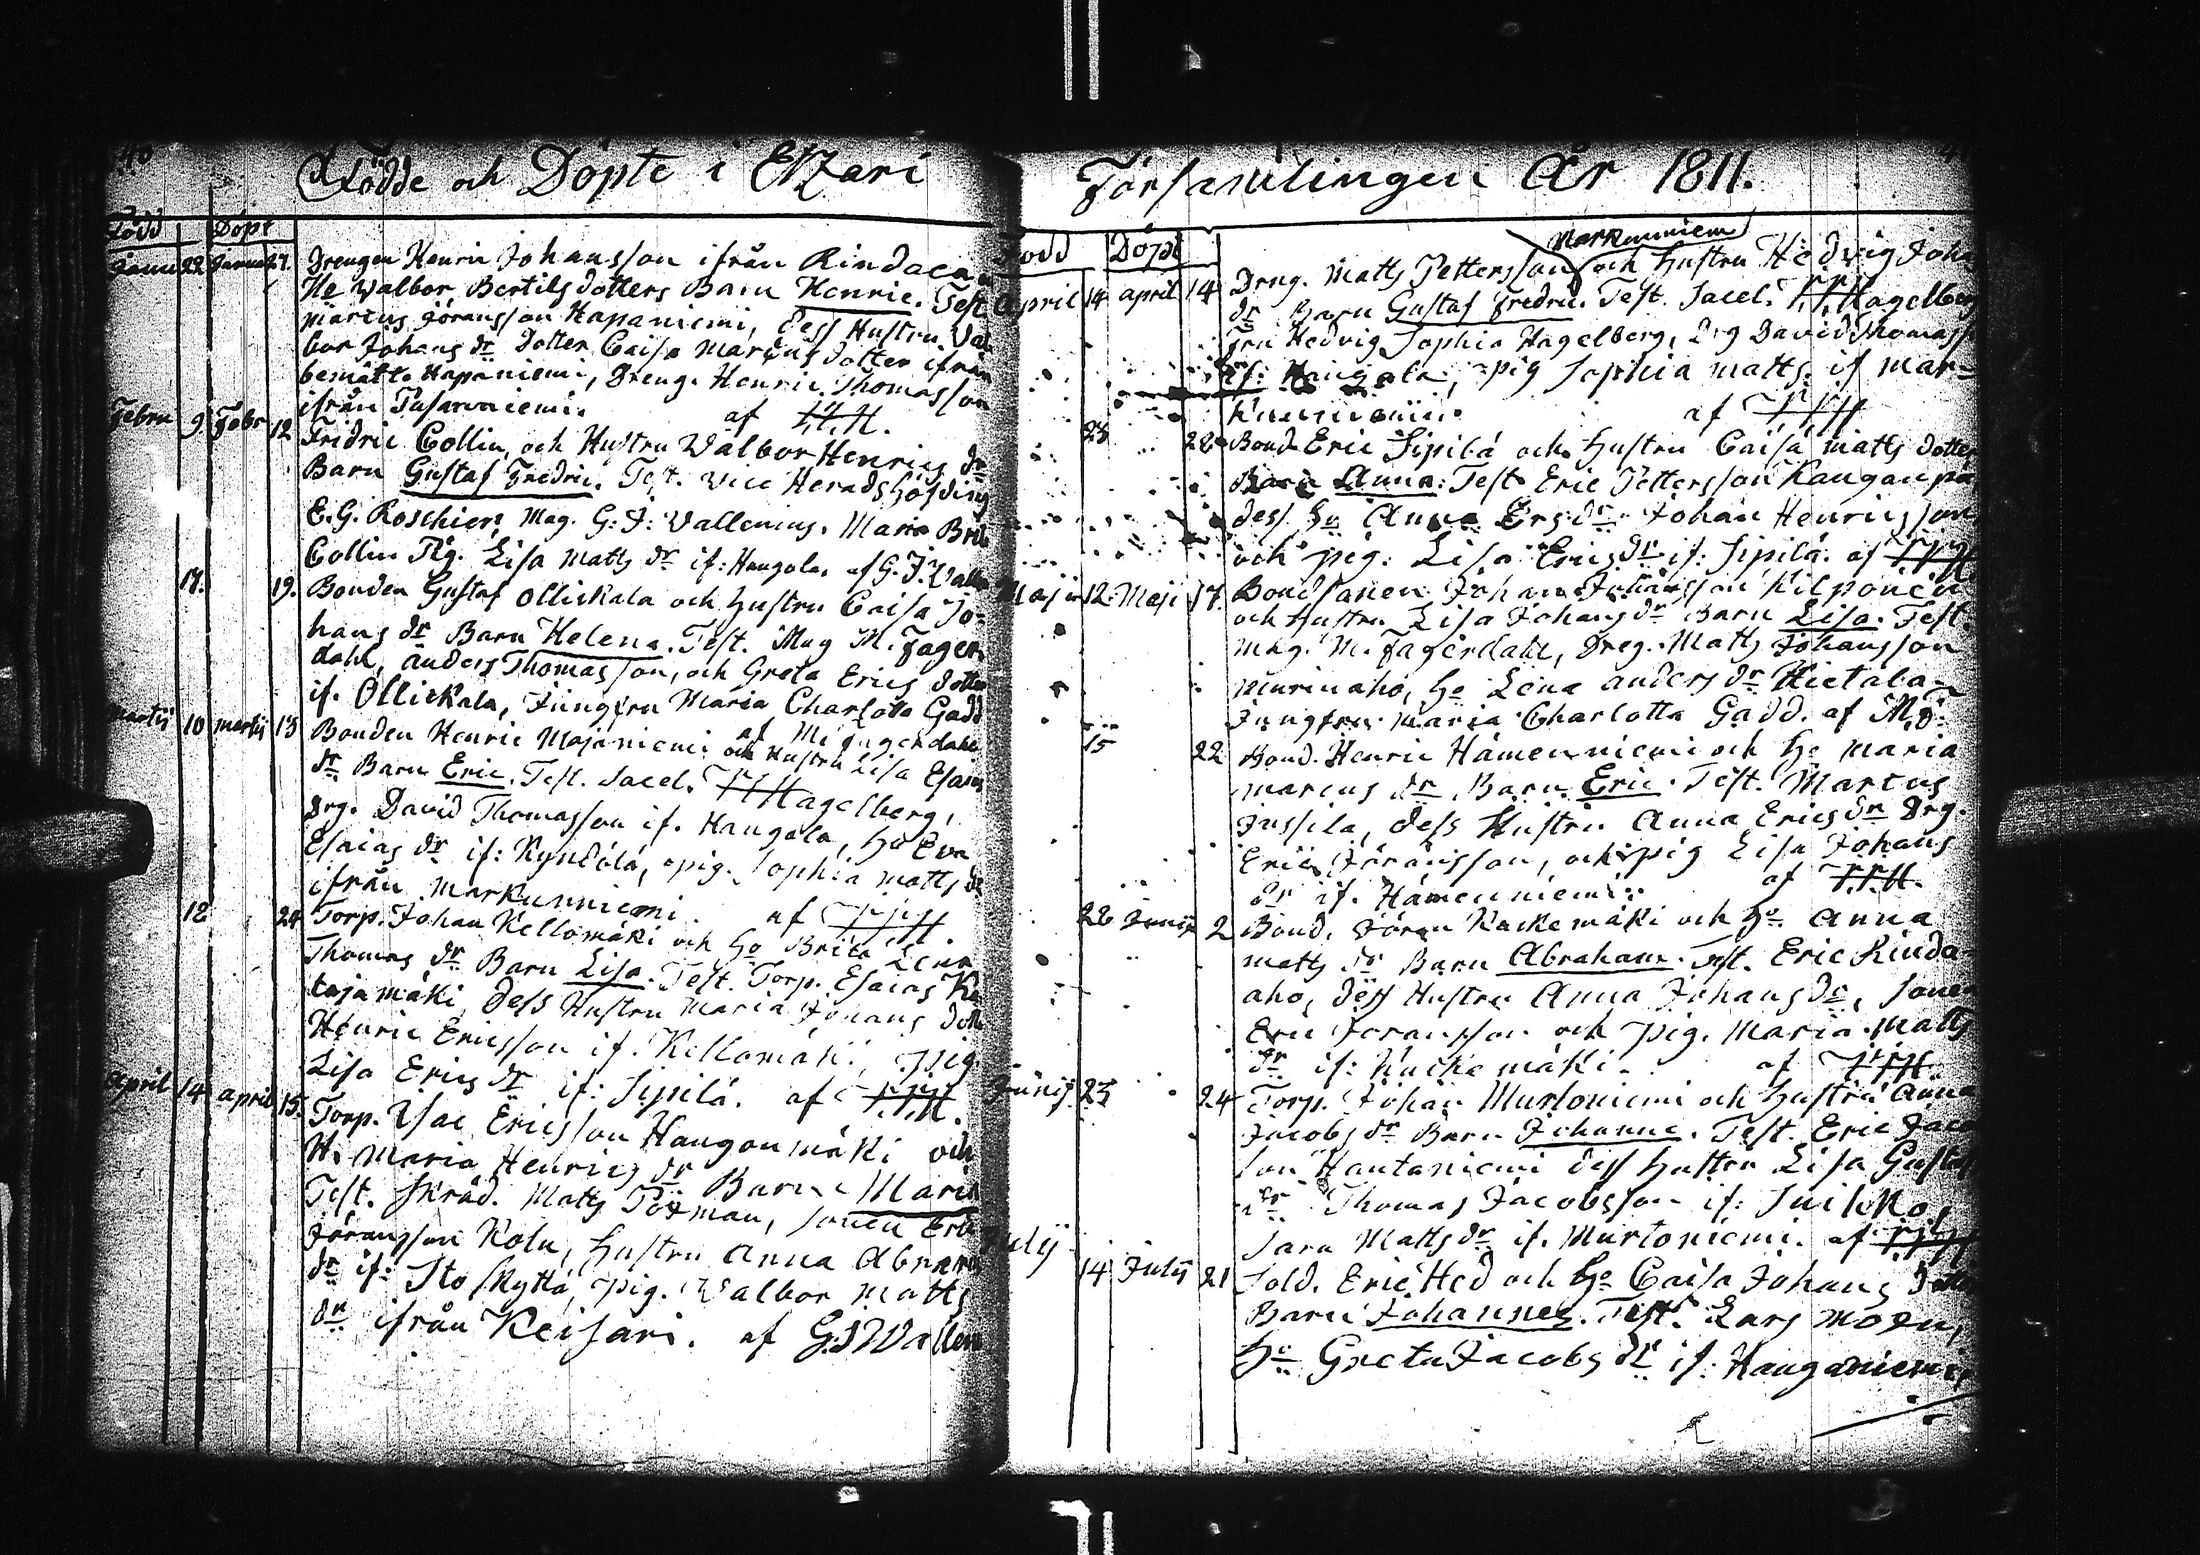 40
Födde och Döpte i Etzeri
Född Döpt
Janu 22 Janu 27. Drengen Henric Johansson ifrån Rindaca
Ho Walbor Bertils dotters Barn Henric. Test
Marcus Jöransson Hapaniemi, dess Hustru Val
bor Johans dr. Dotter Caisa Marcus dotter ifrån
bemält. Hapaniemi, Dreng. Henric Thomasson
ifrån Pasarniemi. af
Febru 9 Febr 12 Fridric Collin, och Hustru Walbor Henrics dr
Barn Gustaf Fredric. Test. Vice Heradshöfding
E. G. Roschier, Mag. G: J: Vallenius. Maria Brit
Collin Pig. Lisa Matts dr if: Haugola. af G. J. Valle
17. 19. Bonden Gustaf Ollickala och hustru Caisa Jo-
hans dr Barn Helena. Test. Mag M. Fager
dahl, anders Thomasson, och Greta Erics dotter
if. Ollickala, Jungfru Maria Charlotta Gadd
af M: Fagerdahl
Martii 10 martii 13 Bonden Henric Majaniemi och Hustru Lisa Esaias
dr Barn Eric. Test. Sacel. Hagelberg,
Drg. David Thomasson if. Haugola, Ho Eva
Esaias dr if: Kyndölä, pig. Sophia matts dr
ifrån Markunniemi. af
12 24 Torp. Johan Kellomäki och Ho Brita Lena
Thomas dr Barn Lisa. Test. Torp. Esaias Ka
tajamäki, dess Hustru Maria Johans dott
Henric Ericsson if. Kellomäki, pig.
Lisa Erics dr if: Sipilä. af
April 14 april 15. Torp. Isac Ericsson Haugonmäki och
H. Maria Henrics dr Barn Maria
Test. Skräd. Matts Törman, Sonen Eric
Jöransson Kolu, hustru Anna Abram
dr if: Sto Kyttä, pig. Walbor Matts
dr ifrån Keisari. af G.J Wallen
Församlingen År 1811.
Född Döpt
Markunniemi
April 14 april 14 Dreng. Matts Pettersson och hustru Hedvig Joha
dr Barn Gustaf Fredric. Test. Sacel. Hagelberg
Fru Hedvig Sophia Hagelberg, Drg David Thomass
if: Haugola, pig Sophia matts. if Mar-
kunniemi. af
28 28 Bond Eric Sipilä och hustru Caisa matts dotter
Barn Anna. Test Eric Pettersson Kauganpä
dess ho Anna Ers dr Johan Henricsson
och pig. Lisa Erics dr if: Sipilä. af
Maji 12 Maji 17. Bondsonen Johan Johansson Kilpönen
och hustru Lisa Johans dr Barn Lisa. Test
Mag. M. Fagerdahl, Dreg. Matts Johansson
Murinaho, ho Lena anders dr Hietala
Jungfru Maria Charlotta Gadd. af M. F:
15 22 Bond. Henric Hämenniemi och ho Maria
Marcus dr Barn Eric. Test. Marcus
Jussila, dess Hustru Anna Erics dr Drg.
Eric Jöransson, och pig Lisa Johans
dr if. Hämenniemi. af
28 Junii 2 Bond. Jöran Kuckemäki och ho Anna
matts dr Barn Abraham. Test. Eric Rinda
aho, dess Hustru Anna Johans dr, Sonen
Eric Jöransson och pig. Maria Matts
dr if: Kuckemäki. af
Junij 23 24 Torp. Johan Murtoniemi och hustru Anna
Jacobs dr Barn Johanna. Test. Eric Jacob
son Hautaniemi dess hustru Lisa Gustaf
dr Thomas Jacobsson if: Suikko,
Sara Matts dr if. Murtoniemi. af
Julij 14 Julij 21 Sold. Eric Hed och ho Caisa Johans Dott
Barn Johannes. Test. Lars Moen,
ho Greta Jacobs dr if: Hauganiemi,